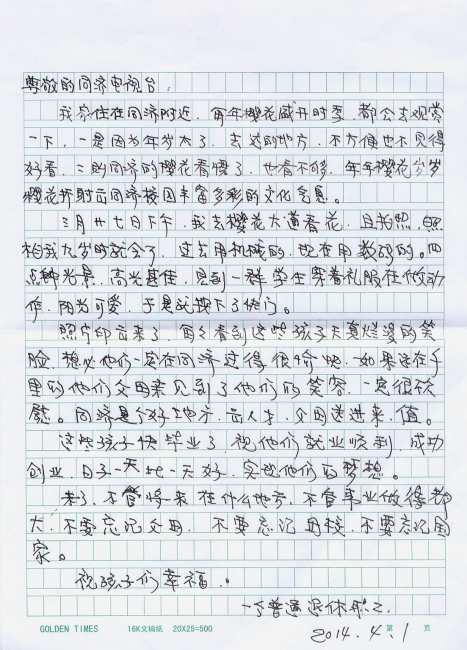 尊敬的同济电视台:
我家住在同济附近,每年樱花盛开时季,都会去观赏
一下,一是因为年岁大了,去远的地方,不方便也不见得
好看,二则同济的樱花看惯了,也看不够,年年樱花岁岁
樱花折射出同济校园丰富多彩的文化气息。
三月廿七日下午,我去樱花大道看花,且拍照,照
相我九岁时就会了,过去用机械的,现在用数码的。四
点钟光景,高光甚佳,见到一群学生穿着礼服在做动
作,阳光可爱,于是就摄下了他们。
照片印出来了,再次看到这些孩子天真烂漫的笑
脸,想必他们一定在同济过得很愉快,如果远在千
里的他们父母亲见到了他们的笑容,一定很欣
慰。同济是个好地方,出人才,父母送进来,值。
这些孩子快毕业了,祝他们就业顺利,成功
创业,日子一天比一天好,实现他们的梦想。
末了,不管将来在什么地方,不管事业做得都
大,不要忘记父母,不要忘记母校,不要忘记国
家。
祝孩子们幸福。
一个普通退休职工.
2014.4.1
GOLDEN TIMES 16K文稿纸 20X25=500 第 页